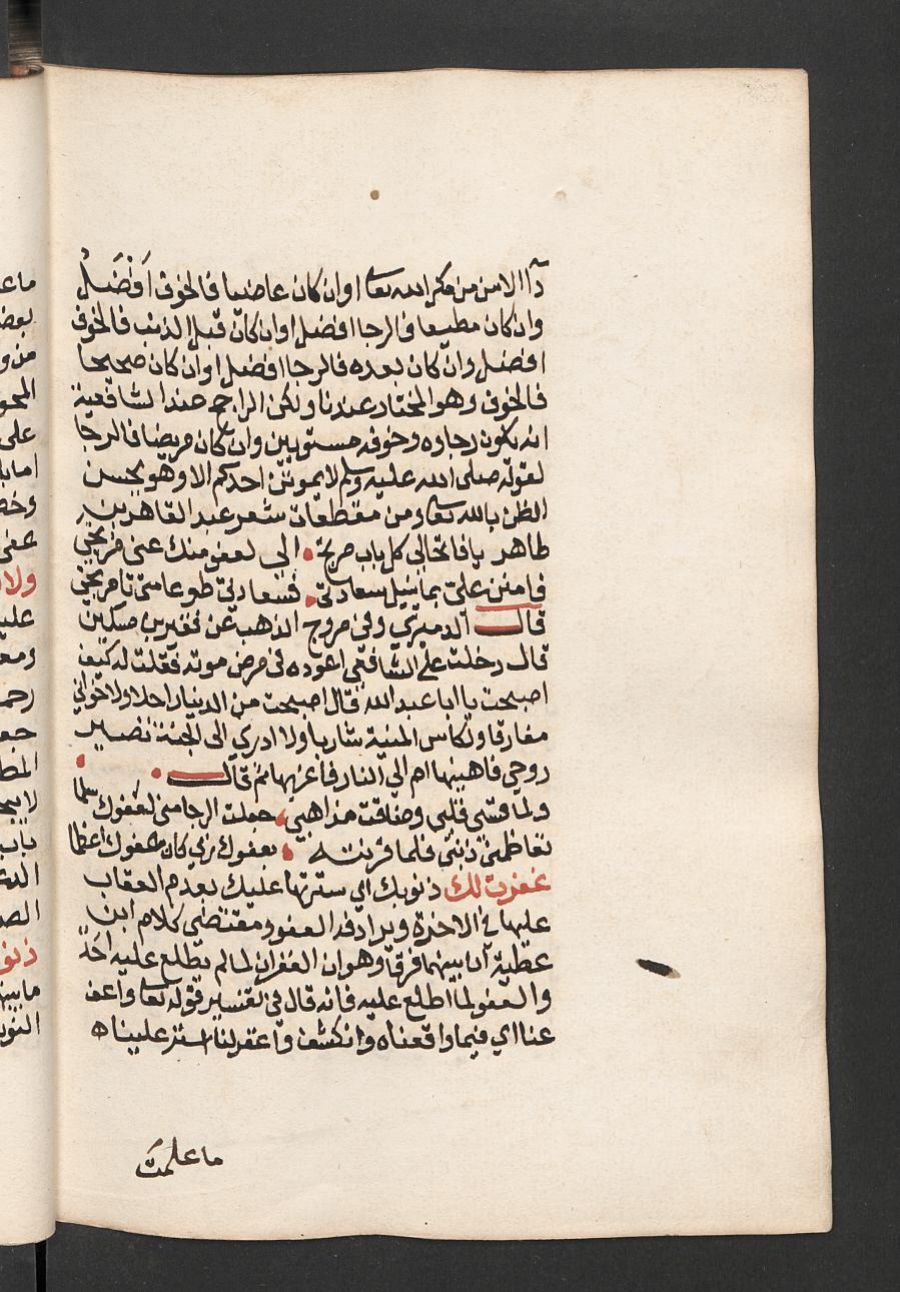 دآ الامن من مكر الله تعا او ان كان عاصيا فالخوف افضل
وان كان مطيعا فالرجا افضل او ان كان قبل الذنب فالخوف
افضل وان كان بعده فالرجا افضل او ان كان صحيحا
فالخوف وهو المختار عندنا ولكن الراجح عند الشافعية
انه يكون رجاوه وخوفه مستويين وان كان مريضا فالرجا
لقوله صلى الله عليه وسلم لا يموتن احدكم الا وهو يحسن
الظن بالله تعا ومن مقطعات شعر عبد القاهر بن
طاهر يا فاتحا لي كل باب مرتج • اني لعفو منك عني مرتجي
فامنن علي بما ينيل سعادتي • فسعادتي طوعا متى تامر تجي
قال الدميري وفي مروج الذهب عن فقير بن مسكين
قال دخلت على الشافعي اعوده في مرض موته فقلت له كيف
اصبحت يا ابا عبد الله قال اصبحت من الدنيا راحلا ولاخواني
مفارقا ولكاس المنية شاربا ولا ادري الى الجنة تصير
روحي فاهنيها ام الي النار فاعزيها ثم قال •
ولما قسي قلبي وضاقت مذاهبي • جعلت الرجا مني لعفوك سلما
تعاظمني ذنبي فلما قرنته • بعفوك ربي كان عفوك اعظما
غفرت لك ذنوبك اي سترتها عليك بعدم العقاب
عليها في الاخرة ويرادفه العفو ومقتضى كلام ابن
عطية ان بينهما فرقا وهو ان الغفران لما لم يطلع عليه احد
والعفو لما اطلع عليه فانه قال في تفسير قوله تعا واعف
عنا اي فيما واقعناه وانكشف واغفر لنا استر علينا ه
ما علمت